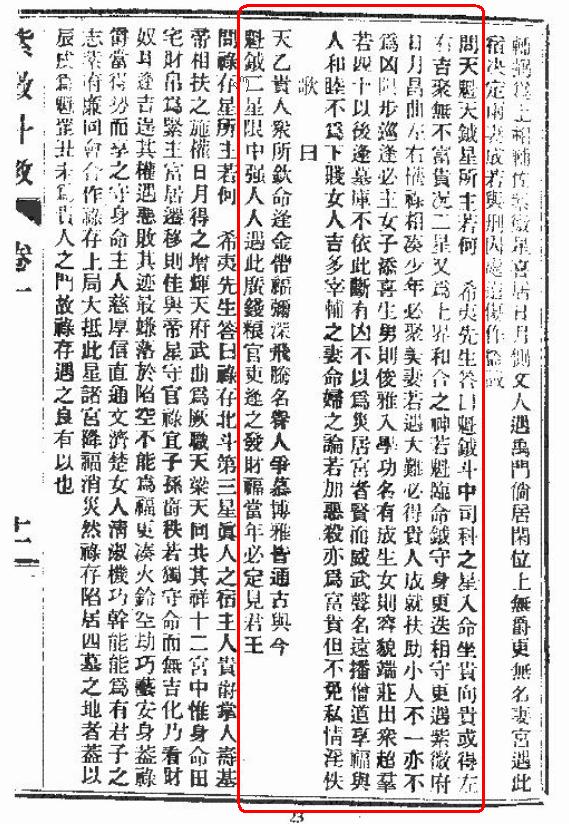 輔弼為上相輔佐紫微星喜居日月側文人遇禹門倘居閑位上無爵更無名妻宮遇此
宿決定兩妻成若與刑囚處遭傷作盜賊
問天魁天鉞星所主若何　希夷先生答曰魁鉞斗中司科之星入命坐貴向貴或得左
右吉聚無不富貴況二星又為上界和合之神若魁臨命鉞守身更迭相守更遇紫微府
日月昌曲左右權祿相湊少年必娶美妻若遇大難必得貴人成就扶助小人不一亦不
為凶限步巡逢必主女子添喜生男則俊雅入學功名有成生女則容貌端莊出衆超羣
若四十以後逢墓庫不依此斷有凶不以為災居官者賢而威武聲名遠播僧道享福與
人和睦不為下賤女人吉多宰輔之妻命婦之論若加惡殺亦為富貴但不免私情淫佚
歌曰
天乙貴人衆所欽命逢金帶福彌深飛騰名譽人爭慕博雅皆通古與今
魁鉞二星限中强人人遇此廣錢粮官吏逢之發財福當年必定見君王
問祿存星所主若何　希夷先生答曰祿存北斗第三星真人之宿主人貴爵掌人壽基
帝相扶之施權日月得之增輝天府武曲為厥職天梁天同共其祥十二宮中惟身命田
宅財帛為緊主富居遷移則佳與帝星守官祿宜子孫爵秩若獨守命而無吉化乃看財
奴耳逢吉逞其權遇惡敗其迹最嫌落於陷空不能為福更湊火鈴空劫巧藝安身蓋祿
爵當得勢而享之守身命主人慈厚信直通文濟楚女人清淑機巧幹能能為有君子之
志紫府廉同會合作祿存上局大抵此星諸宮降福消災然祿存陷居四墓之地者蓋以
辰戌為魁罡丑未為貴人之門故祿存遇之良有以也
紫微斗數　卷一　十二
23